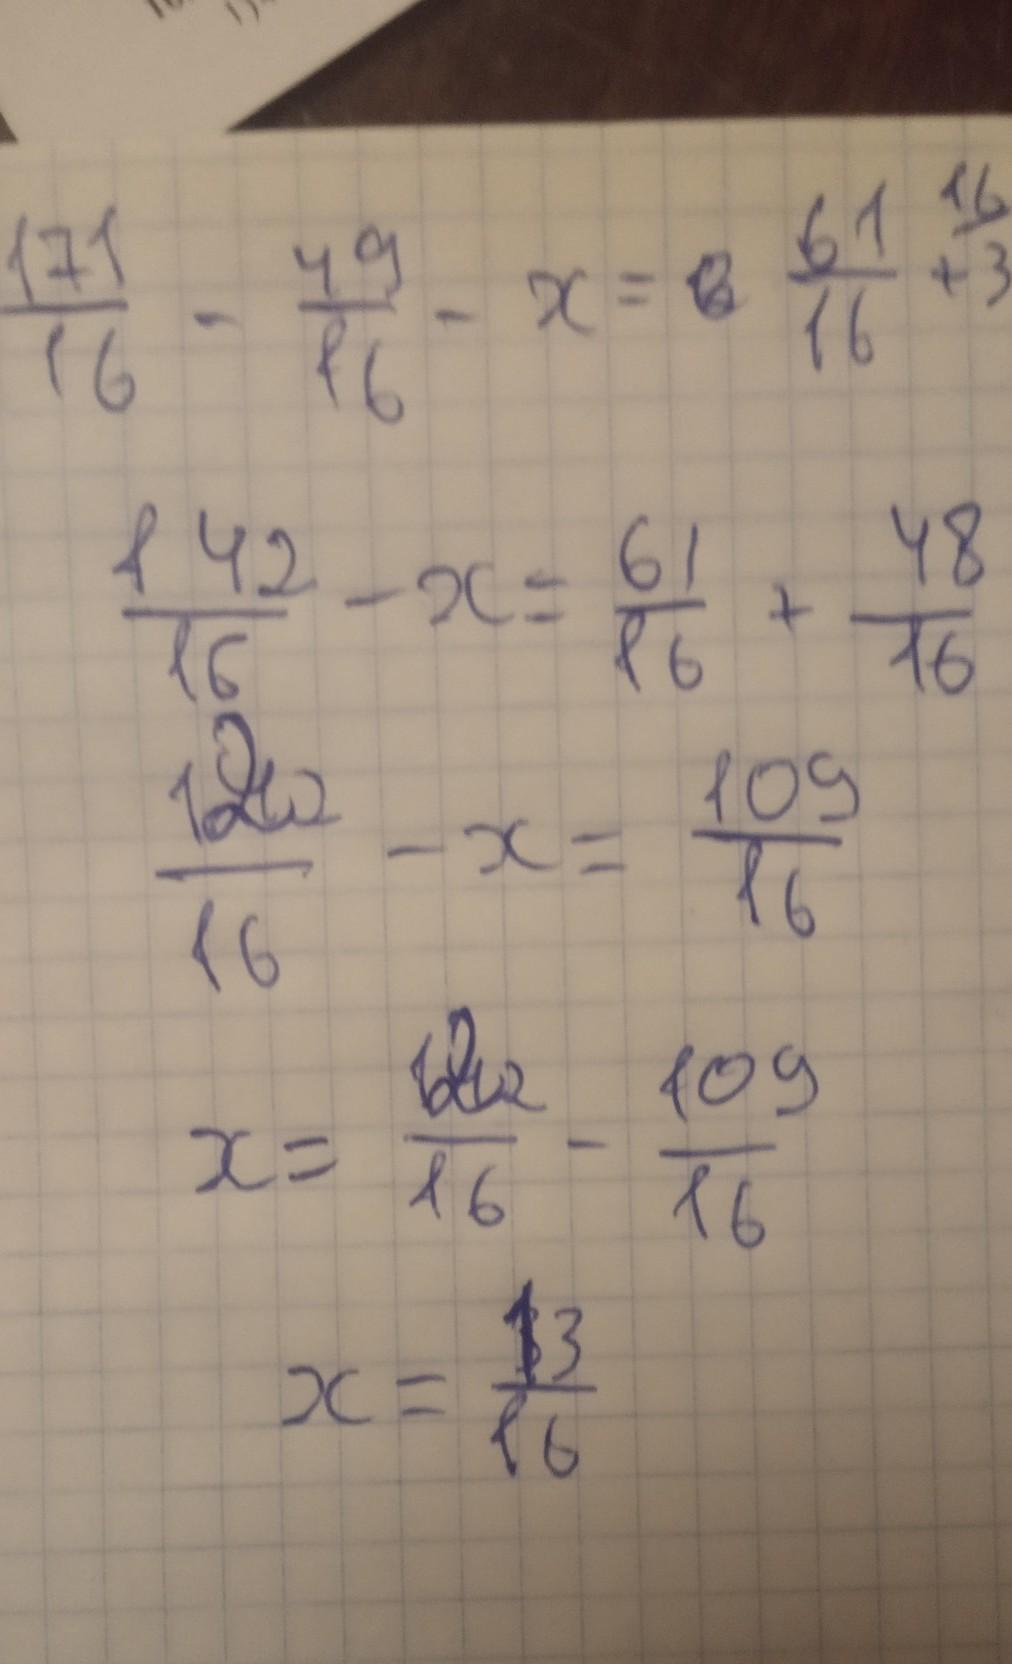 171/16 - 49/16 - x = 61/16 + 3 16/
142/16 - x = 61/16 + 48/16
122/16 - x = 109/16
x = 122/16 - 109/16
x = 13/16